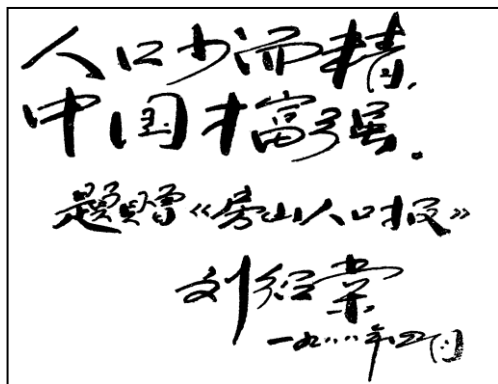 人口少而精，
中国才富强。
题赠《房山人口报》
刘绍棠
一九八八年四月